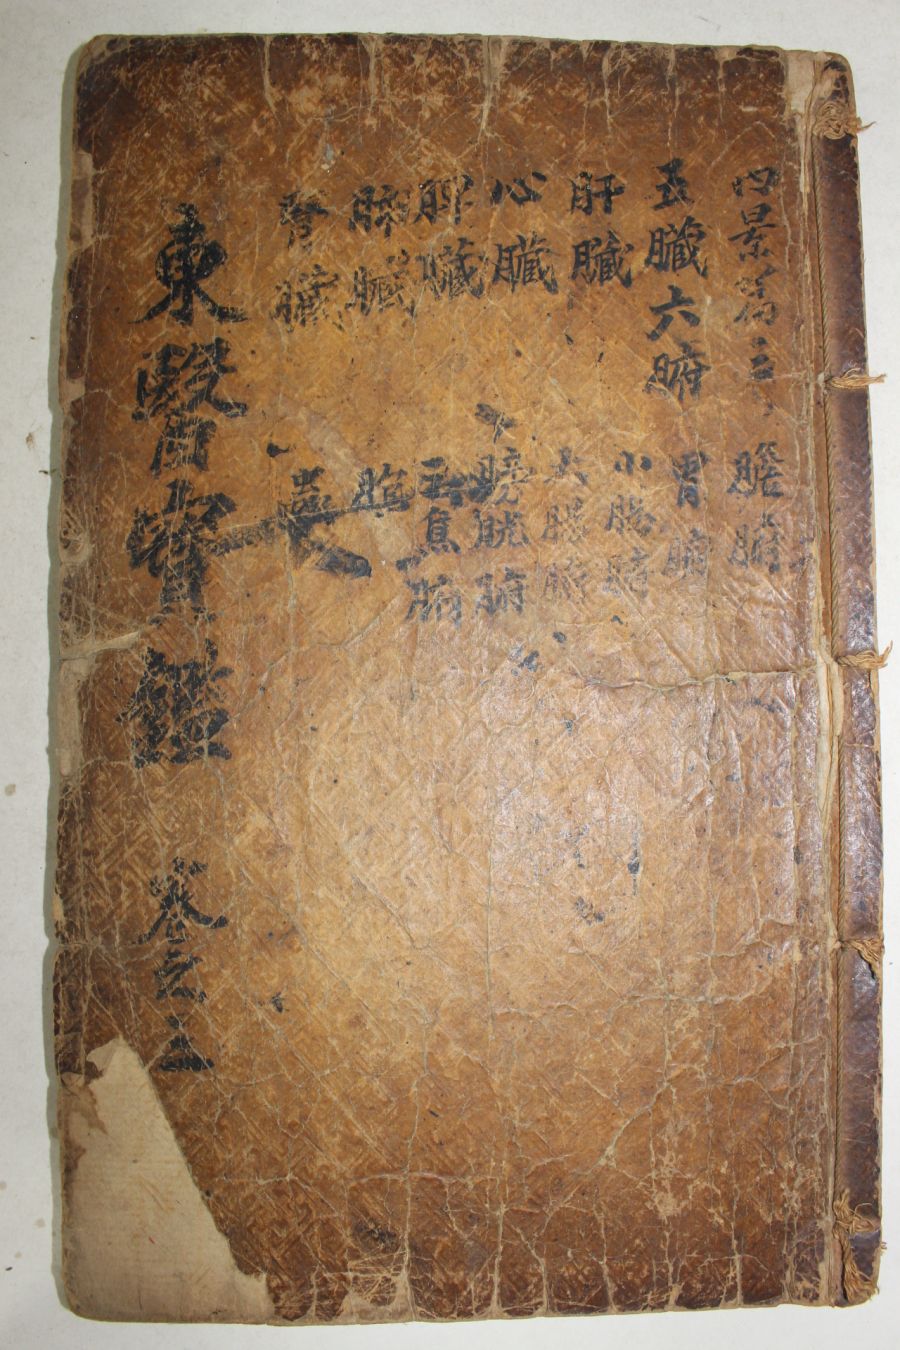 內景篇三
五臟六腑
肝臟
心臟
脾臟
肺臟
腎臟
膽腑
胃腑
小腸腑
大腸腑
膀胱腑
三焦腑
胞
蟲
東醫寶鑑 卷之三